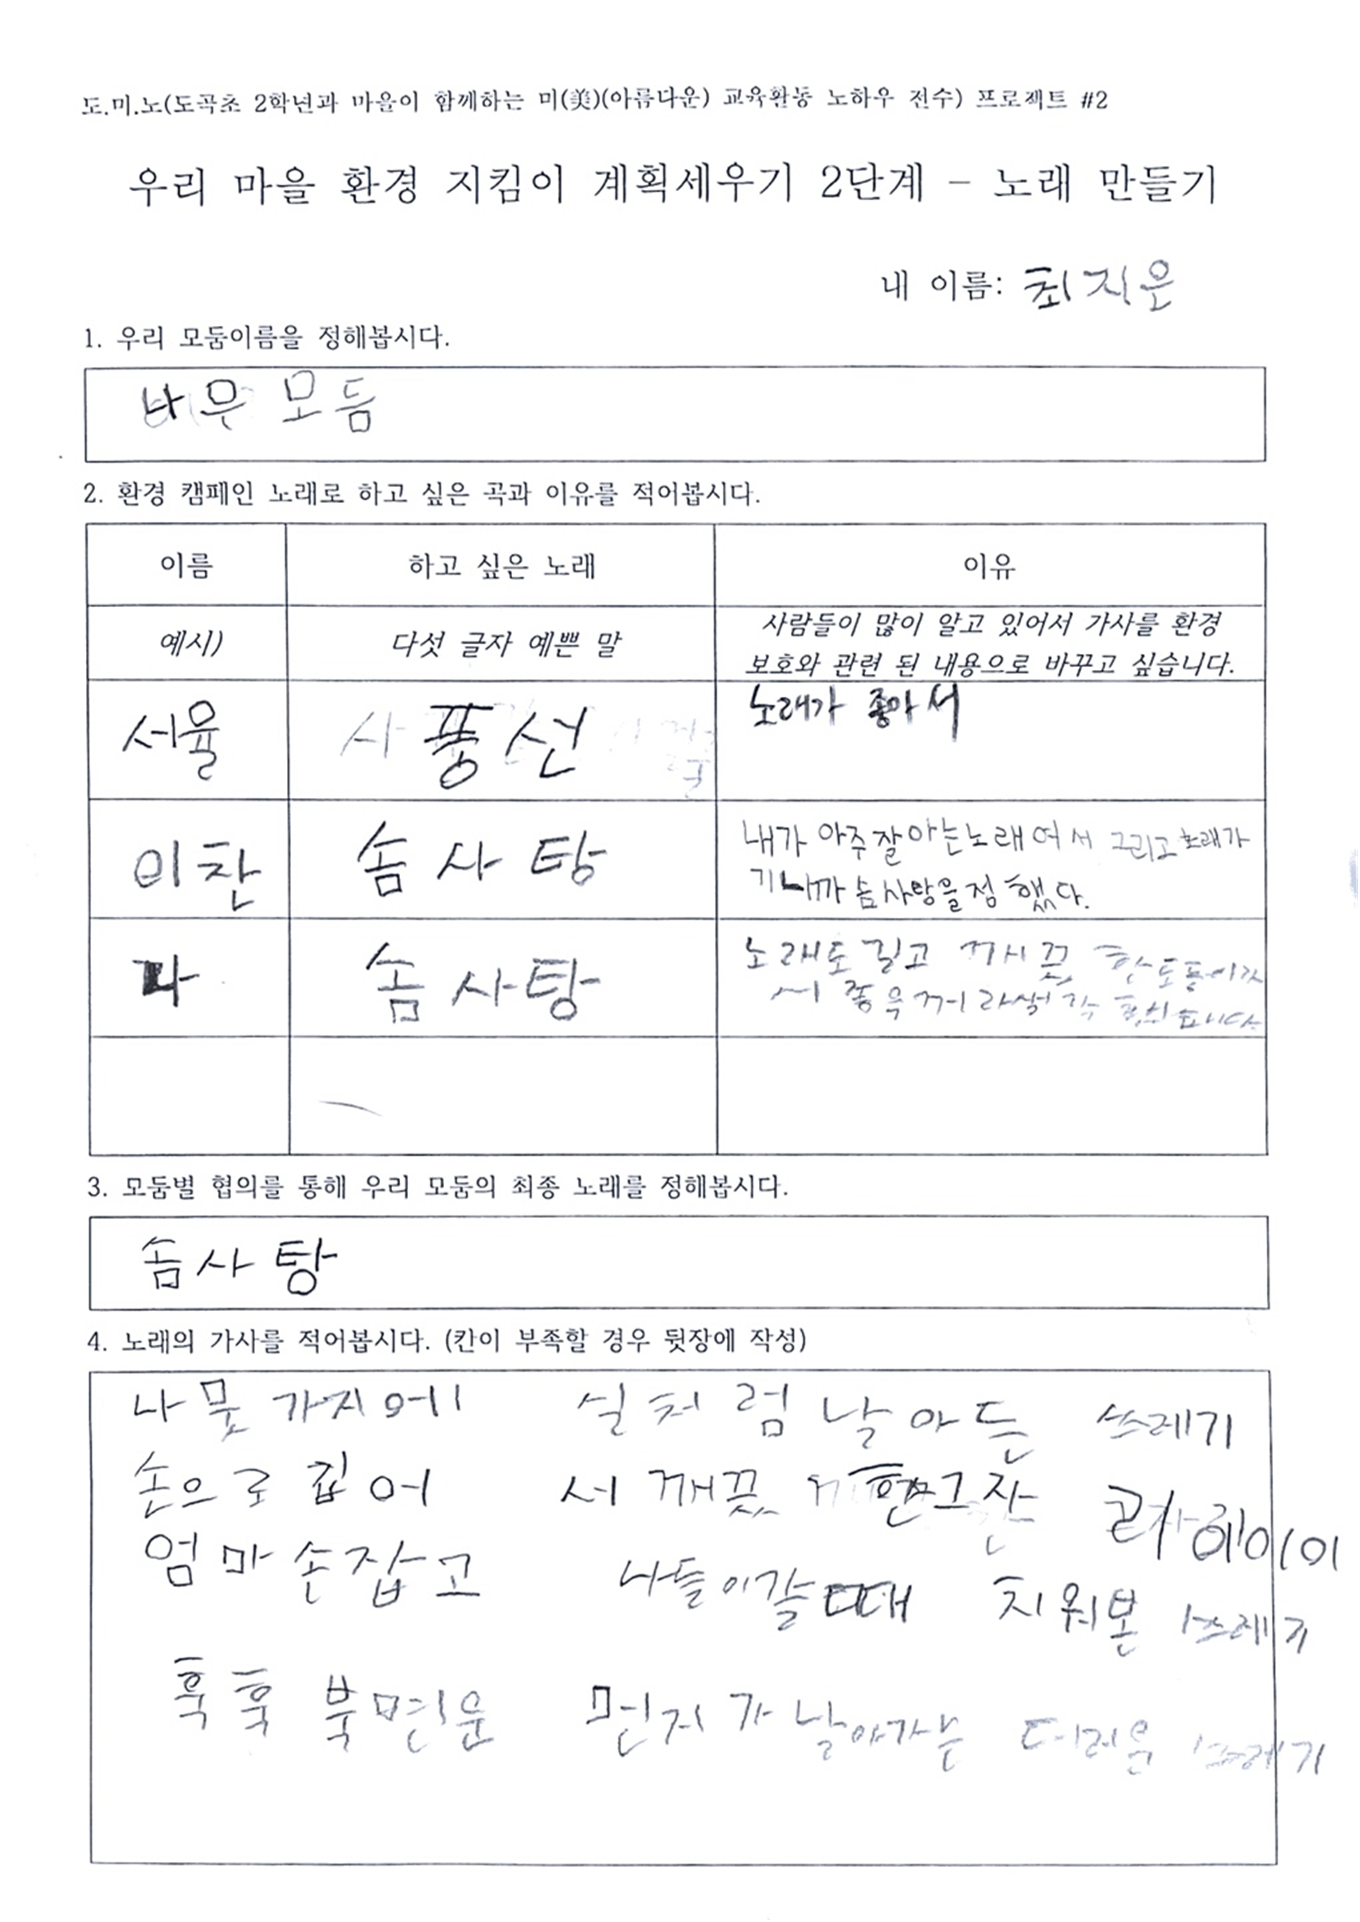 도.미.노(도곡초 2학년과 마을이 함께하는 미(美)(아름다운) 교육활동 노하우 전수) 프로젝트 #2
우리 마을 환경 지킴이 계획세우기 2단계 - 노래 만들기
내 이름: 최지은
1. 우리 모둠이름을 정해봅시다.
나무 모둠
2. 환경 캠페인 노래로 하고 싶은 곡과 이유를 적어봅시다.
이름 하고 싶은 노래 이유
예시) 다섯 글자 예쁜 말 사람들이 많이 알고 있어서 가사를 환경
보호와 관련 된 내용으로 바꾸고 싶습니다.
서율 풍선 노래가 좋아서
이찬 솜사탕 내가 아주 잘 아는 노래여서 그리고 노래가
기니까 솜사탕을 정했다.
나 솜사탕 노래도 길고 깨끗
3. 모둠별 협의를 통해 우리 모둠의 최종 노래를 정해봅시다.
솜사탕
4. 노래의 가사를 적어봅시다. (칸이 부족할 경우 뒷장에 작성)
나뭇가지에 실처럼 날아든 쓰레기
손으로 집어 서 깨끗
엄마 손잡고 나들이갈때 치워본 쓰레기
훅훅 북면운 먼지가 날아가는 더러운 쓰레기